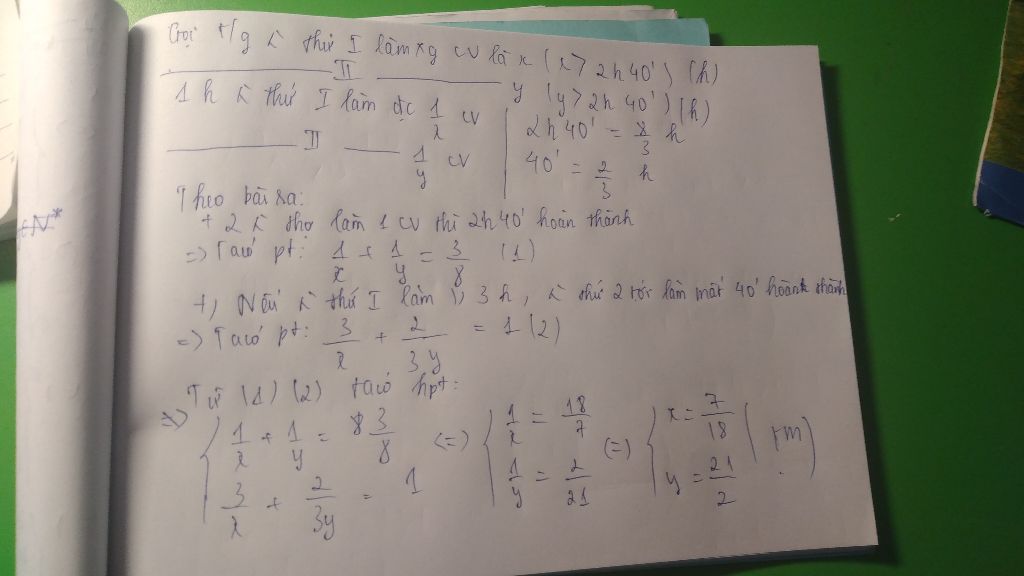 Gọi t/g k thứ I làm xg cv là x (x > 2h 40') (h)
II y (y > 2h 40') (h)
1 h k thứ I làm đc 1/x cv
II 1/y cv
2h 40' = 8/3 h
40' = 2/3 h
Theo bài ra:
+ 2 k thợ làm 1 cv thì 2h 40' hoàn thành
=> Ta có pt: 1/x + 1/y = 3/8 (1)
+, Nếu k thứ I làm 3 h, k thứ 2 tới làm mất 40' hoàn thành
=> Ta có pt: 3/x + 2/3y = 1 (2)
Từ (1) (2) ta có hpt:
=> { 1/x + 1/y = 3/8 <=> { 1/x = 18/7 <=> { x = 7/18 (tm)
3/x + 2/3y = 1 1/y = 2/21 y = 21/2
∈N*